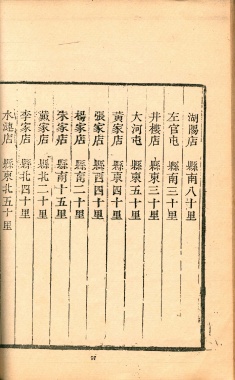 湖陽店 縣南八十里
左官屯 縣南三十里
井樓店 縣東三十里
大河屯 縣東五十里
黃家店 縣東四十里
張家店 縣西四十里
楊家店 縣南二十里
朱家店 縣南十五里
戴家店 縣北二十里
李家店 縣北四十里
縣東北五十里